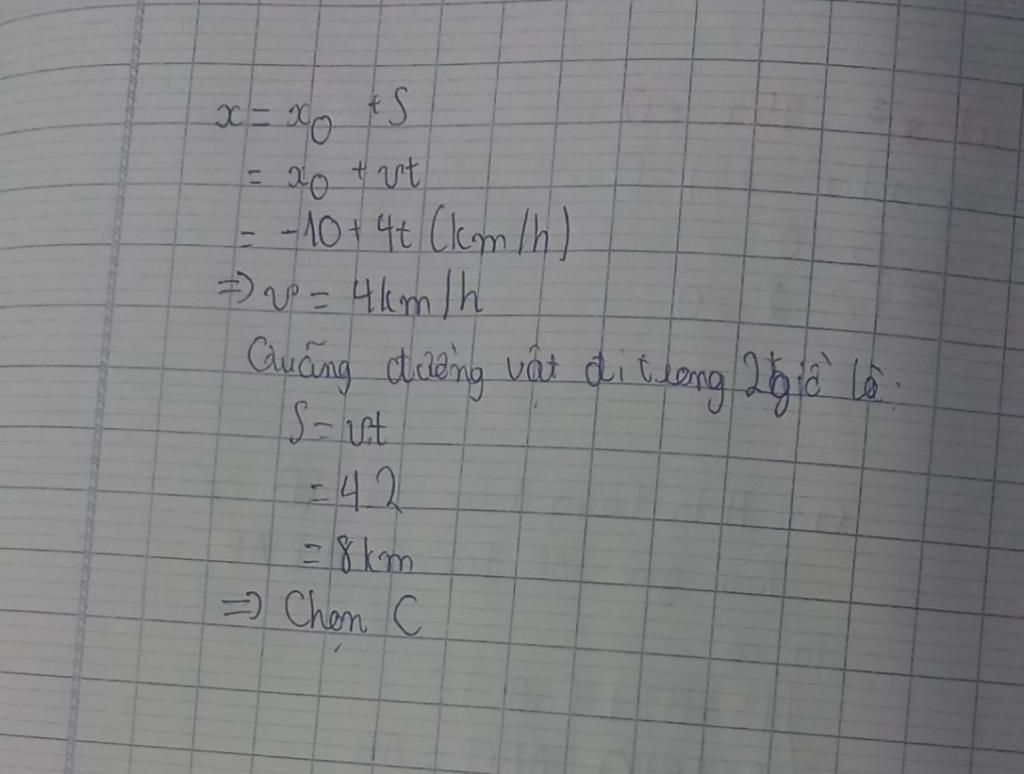 x = x₀ + S
= x₀ + vt
= -10 + 4t (km/h)
⇒ v = 4km/h
Quãng đường vật đi trong 2 giờ là:
S = v.t
= 4.2
= 8km
⇒ Chọn C